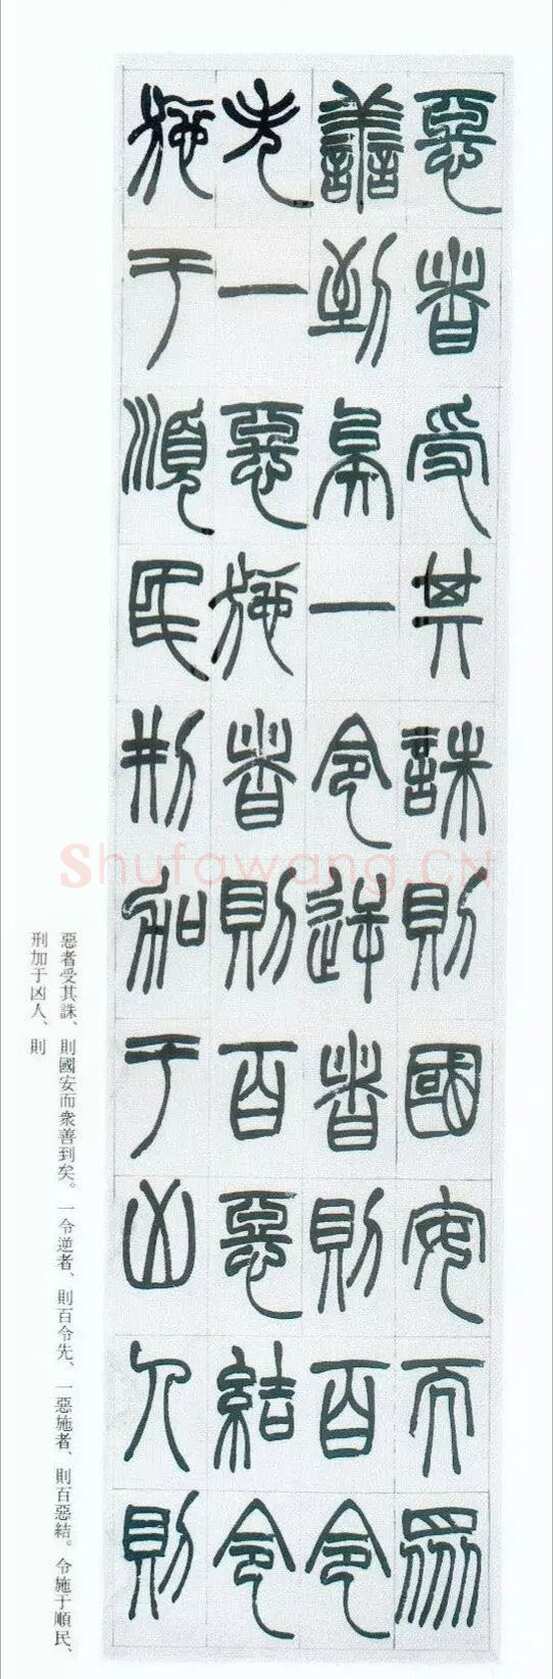 惡者受其誅則國安而衆
善到矣一令逆者則百令
先一惡施者則百惡結令
施于順民刑加于凶人則
惡者受其誅、則國安而衆善到矣。一令逆者、則百令先、一惡施者、則百惡結。令施于順民、
刑加于凶人、則
Shufawang.CN